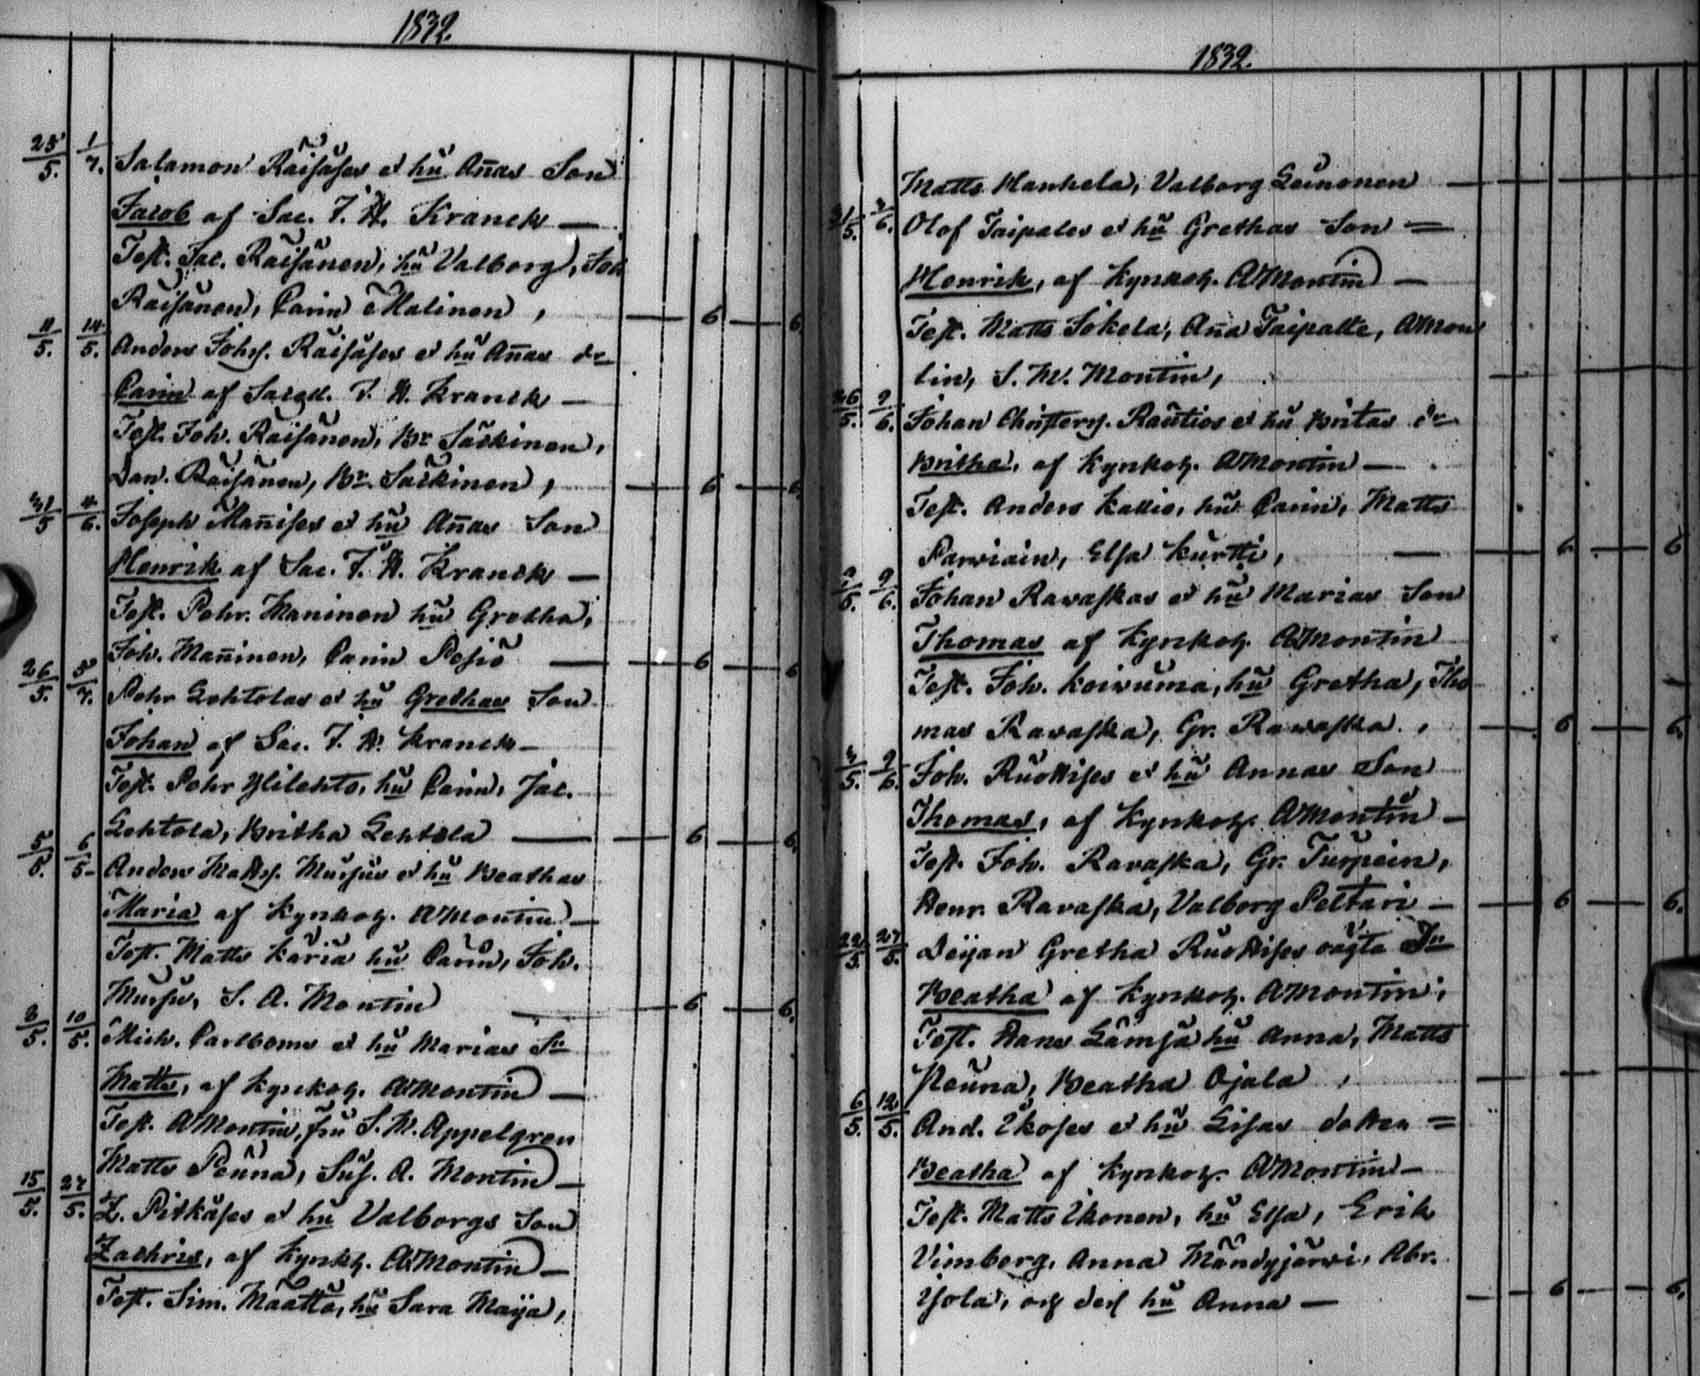 1832.
25/5. 1/7. Salamon Räisäses et hu Añas Son
Jacob af Sac. J. H. Kranck —
Test. Jac. Räisänen, hu Valborg, Joh
Räisänen, Carin Malinen, — 6 — 6.
11/5. 14/5. Anders Johss. Räisäses et hu Añas dr
Carin af Sacell. J. H. Kranck —
Test. Joh. Räisänen, Br. Säckinen,
Dan. Räisänen, Br. Säckinen, — 6 — 6.
31/5 4/6. Joseph Mañises et hu Añas Son
Henrik af Sac. J. H. Kranck —
Test. Pehr. Maninen hu Gretha,
Joh. Mañinen, Carin Posio — 6 — 6
26/5. 5/7. Pehr Lehtolas et hu Grethas Son
Johan af Sac. J. H. Kranck —
Test. Pehr Ylilehto, hu Carin, Jac.
Lehtola, Britha Lehtola — 6 — 6.
5/5. 6/5. Anders Matss. Mursus et hu Beathas
Maria af Kynkog. AMontin —
Test. Matts Karia hu Carin, Joh.
Mursu, S. A. Montin — 6 — 6.
8/5. 10/5. Mich. Carlboms et hu Marias Sn
Matts, af Kynkog. AMontin —
Test. AMontin, fru S. M. Appelgren
Matts Peuna, Sus. A. Montin —
15/5. 27/5. Z. Pitkäses et hu Valborgs Son
Zachris, af Kynkg. AMontin —
Test. Sim. Määttä, hu Sara Maija,
1832.
Matts Hankela, Valborg Leinonen —
31/5. 3/6. Olof Taipales et hu Grethas Son =
Henrik, af Kynkog. AMontin —
Test. Matts Sokela, Aña Taipalle, AMon
tin, S. M. Montin, —
26/5. 9/6. Johan Christerss. Rautios et hu Britas dr
Britha, af Kynkog. AMontin —
Test. Anders Kallio, hu Carin, Matts
Parviain, Elsa Kurtti, — 6 — 6
9/6. Johan Ravaskas et hu Marias Son
Thomas af Kynkog. AMontin
Test. Joh. Koivuma, hu Gretha, Tho
mas Ravaska, Gr. Ravaska. — 6 — 6.
4/5. 9/6. Joh. Ruottises et hu Annas Son
Thomas, af Kynkog. AMontin —
Test. Joh. Ravaska, Gr. Turpein,
Henr. Ravaska, Valborg Peltari — 6 — 6.
22/5. 27/5. Deijan Gretha Ruottises oägta Dr
Beatha af Kynkog. AMontin,
Test. Hans Lämsä hu Anna, Matts
Peuna, Beatha Ojala, —
6/5. 12/5. And. Ikoses et hu Lisas dotter =
Beatha af Kynkog. AMontin —
Test. Matts Ikonen, hu Elsa, Erik
Vimberg, Anna Mändyjärvi, Abr.
Yola, og dess hu Anna — 6 — 6.